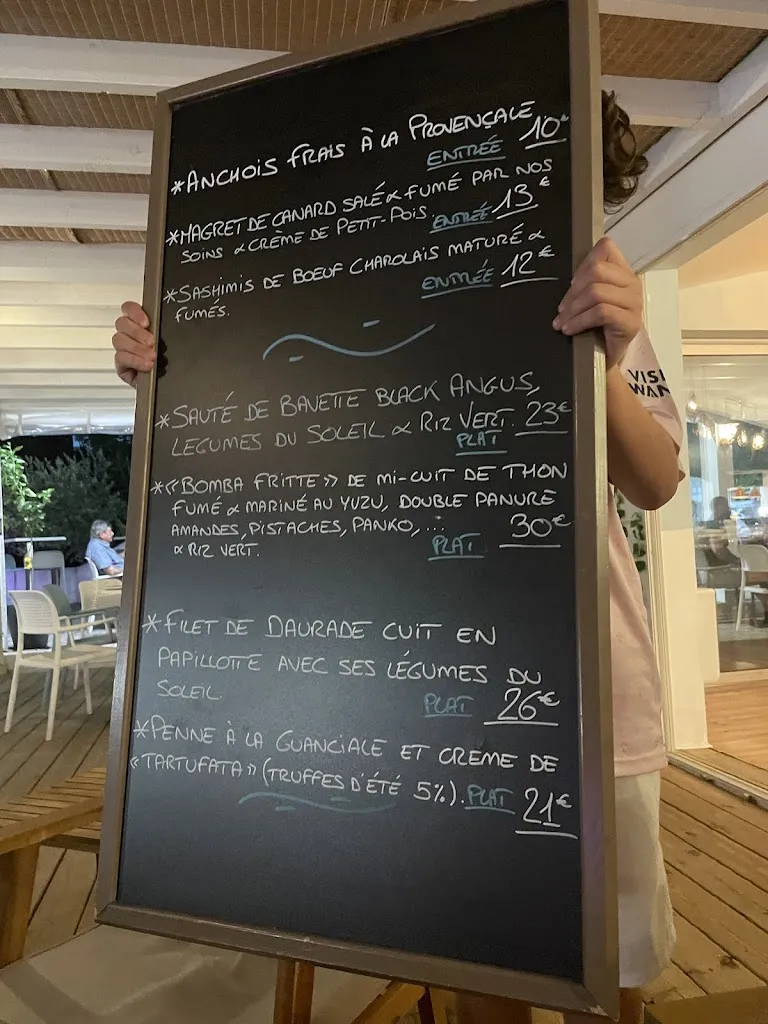 *ANCHOIS FRAIS À LA PROVENÇALE
ENTRÉE 10€
*MAGRET DE CANARD SALÉ & FUMÉ PAR NOS
SOINS & CRÈME DE PETIT-POIS ENTRÉE 13€
*SASHIMIS DE BOEUF CHAROLAIS MATURÉ &
FUMÉS. ENTRÉE 12€
*SAUTÉ DE BAVETTE BLACK ANGUS,
LEGUMES DU SOLEIL & RIZ VERT. 23€
PLAT
*« BOMBA FRITTE » DE MI-CUIT DE THON
FUMÉ & MARINÉ AU YUZU, DOUBLE PANURE
AMANDES, PISTACHES, PANKO, ... 30€
& RIZ VERT. PLAT
*FILET DE DAURADE CUIT EN
PAPILLOTTE AVEC SES LÉGUMES DU
SOLEIL. PLAT 26€
*PENNE À LA GUANCIALE ET CREME DE
« TARTUFATA » (TRUFFES D'ÉTÉ 5%). PLAT 21€
VISI
WAN